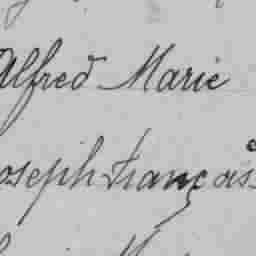 Alfred Marie
Joseph François